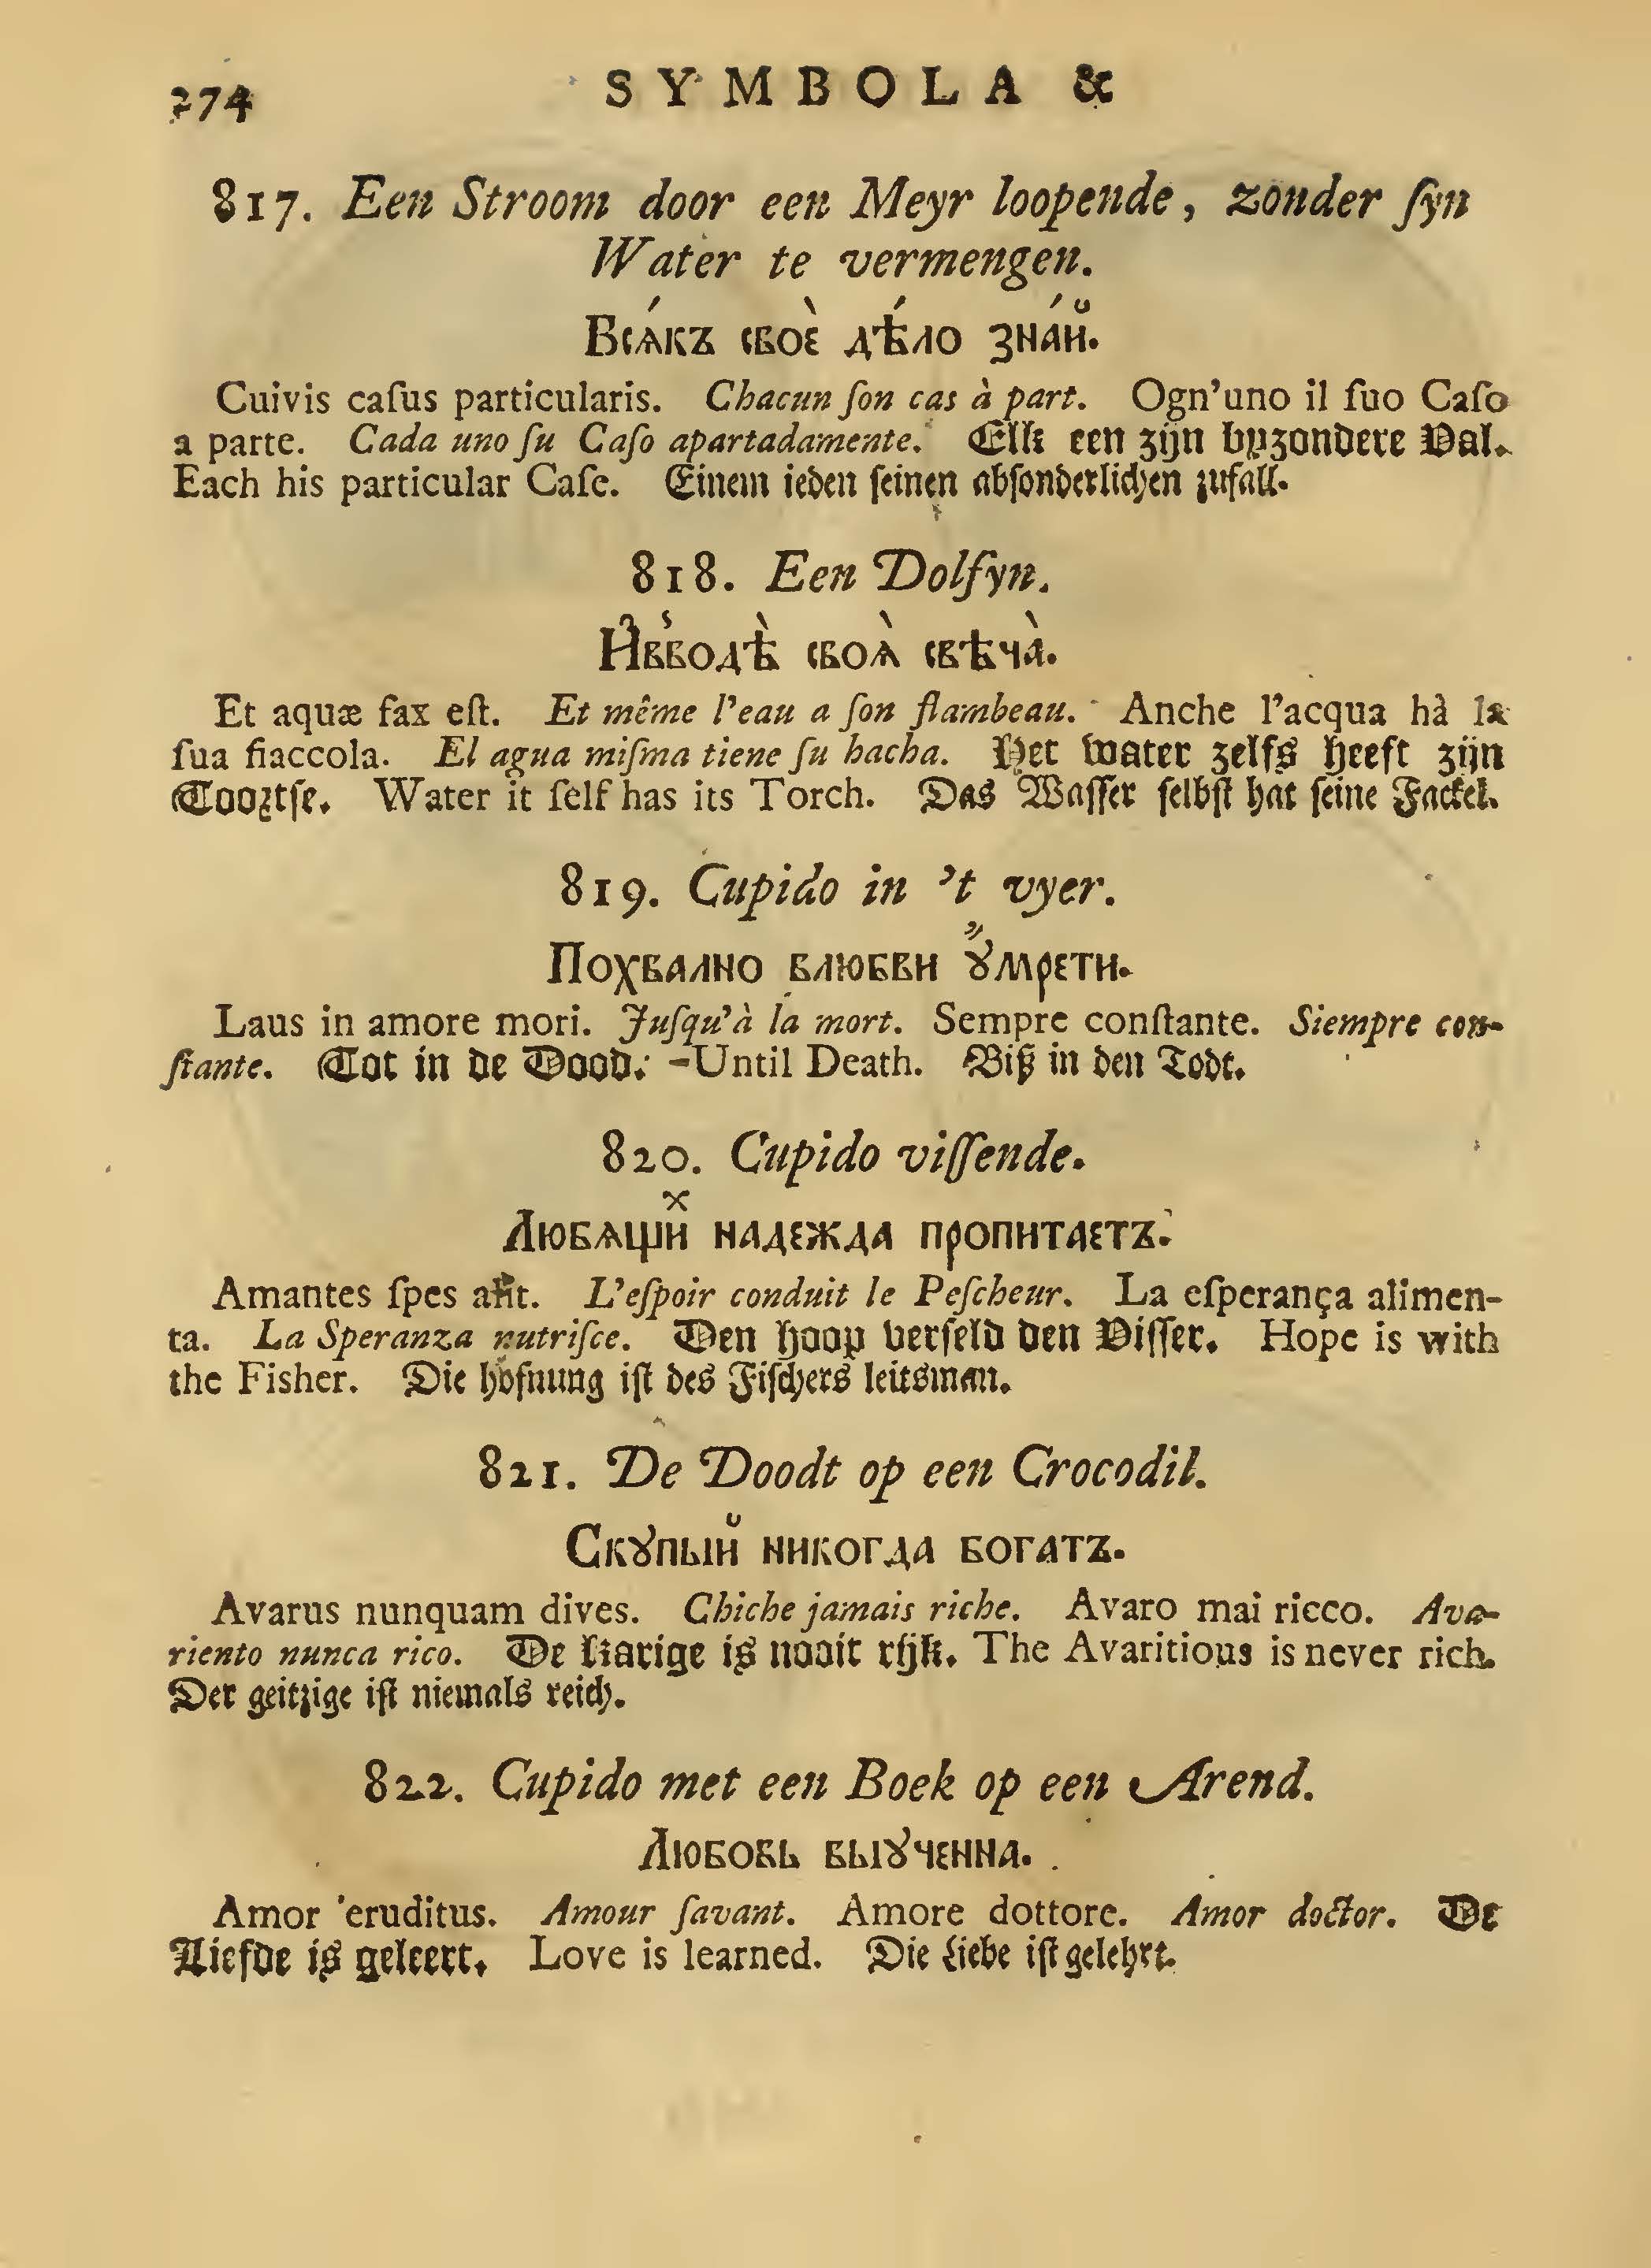 274 SYMBOLA &
817. Een Stroom door een Meyr loopende, zonder ſyn
Water te vermengen.
Всѧ́къ своѐ дѣ́ло зна́й.
Cuivis caſus particularis. Chacun ſon cas à part. Ogn'uno il ſuo Caſo
a parte. Cada uno ſu Caſo apartadamente. Elk een zijn byzondere Val.
Each his particular Caſe. Einem ieden ſeinen abſonderlichen zufall.
818. Een Dolfyn.
И҆въводѣ̀ своѧ̀ свѣча̀.
Et aquæ fax eſt. Et même l'eau a ſon flambeau. Anche l'acqua hà la
ſua fiaccola. El agua miſma tiene ſu hacha. Het water zelfs heeft zijn
Tooꝛtſe. Water it ſelf has its Torch. Das Waſſer ſelbſt hat ſeine Fackel.
819. Cupido in 't vyer.
Похвално влюбви ᲂу҆мрети.
Laus in amore mori. Juſqu'à la mort. Sempre conſtante. Siempre con-
ſtante. Tot in de Dood. Until Death. Biß in den Todt.
820. Cupido viſſende.
Любѧщиⷯ надежда пропитаетъ.
Amantes ſpes alit. L'eſpoir conduit le Peſcheur. La eſperança alimen-
ta. La Speranza nutriſce. Den hoop verſeld den Viſſer. Hope is with
the Fisher. Die hofnung iſt des Fiſchers leitsman.
821. De Doodt op een Crocodil.
Скꙋпый никогда богатъ.
Avarus nunquam dives. Chiche jamais riche. Avaro mai ricco. Ava-
riento nunca rico. De karige is nooit rijk. The Avaritious is never rich.
Der geitzige iſt niemals reich.
822. Cupido met een Boek op een Arend.
Любовь выꙋченна.
Amor eruditus. Amour ſavant. Amore dottore. Amor doctor. De
Liefde is geleert. Love is learned. Die Liebe iſt gelehrt.